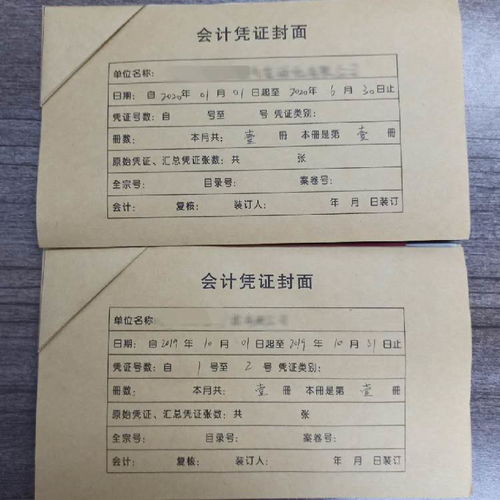 会计凭证封面
单位名称:
日期: 自2020年01月01日起至2020年6月30日止
凭证号数: 自 号至 号 凭证类别:
册数: 本月共: 壹 册 本册是第 壹 册
原始凭证、汇总凭证张数: 共 张
全宗号: 目录号: 案卷号:
会计: 复核: 装订人: 年 月 日装订
会计凭证封面
单位名称:
日期: 自2019年10月01日起至2019年10月31日止
凭证号数: 自 1 号至 2 号 凭证类别:
册数: 本月共: 壹 册 本册是第 壹 册
原始凭证、汇总凭证张数: 共 张
全宗号: 目录号: 案卷号:
会计: 复核: 装订人: 年 月 日装订